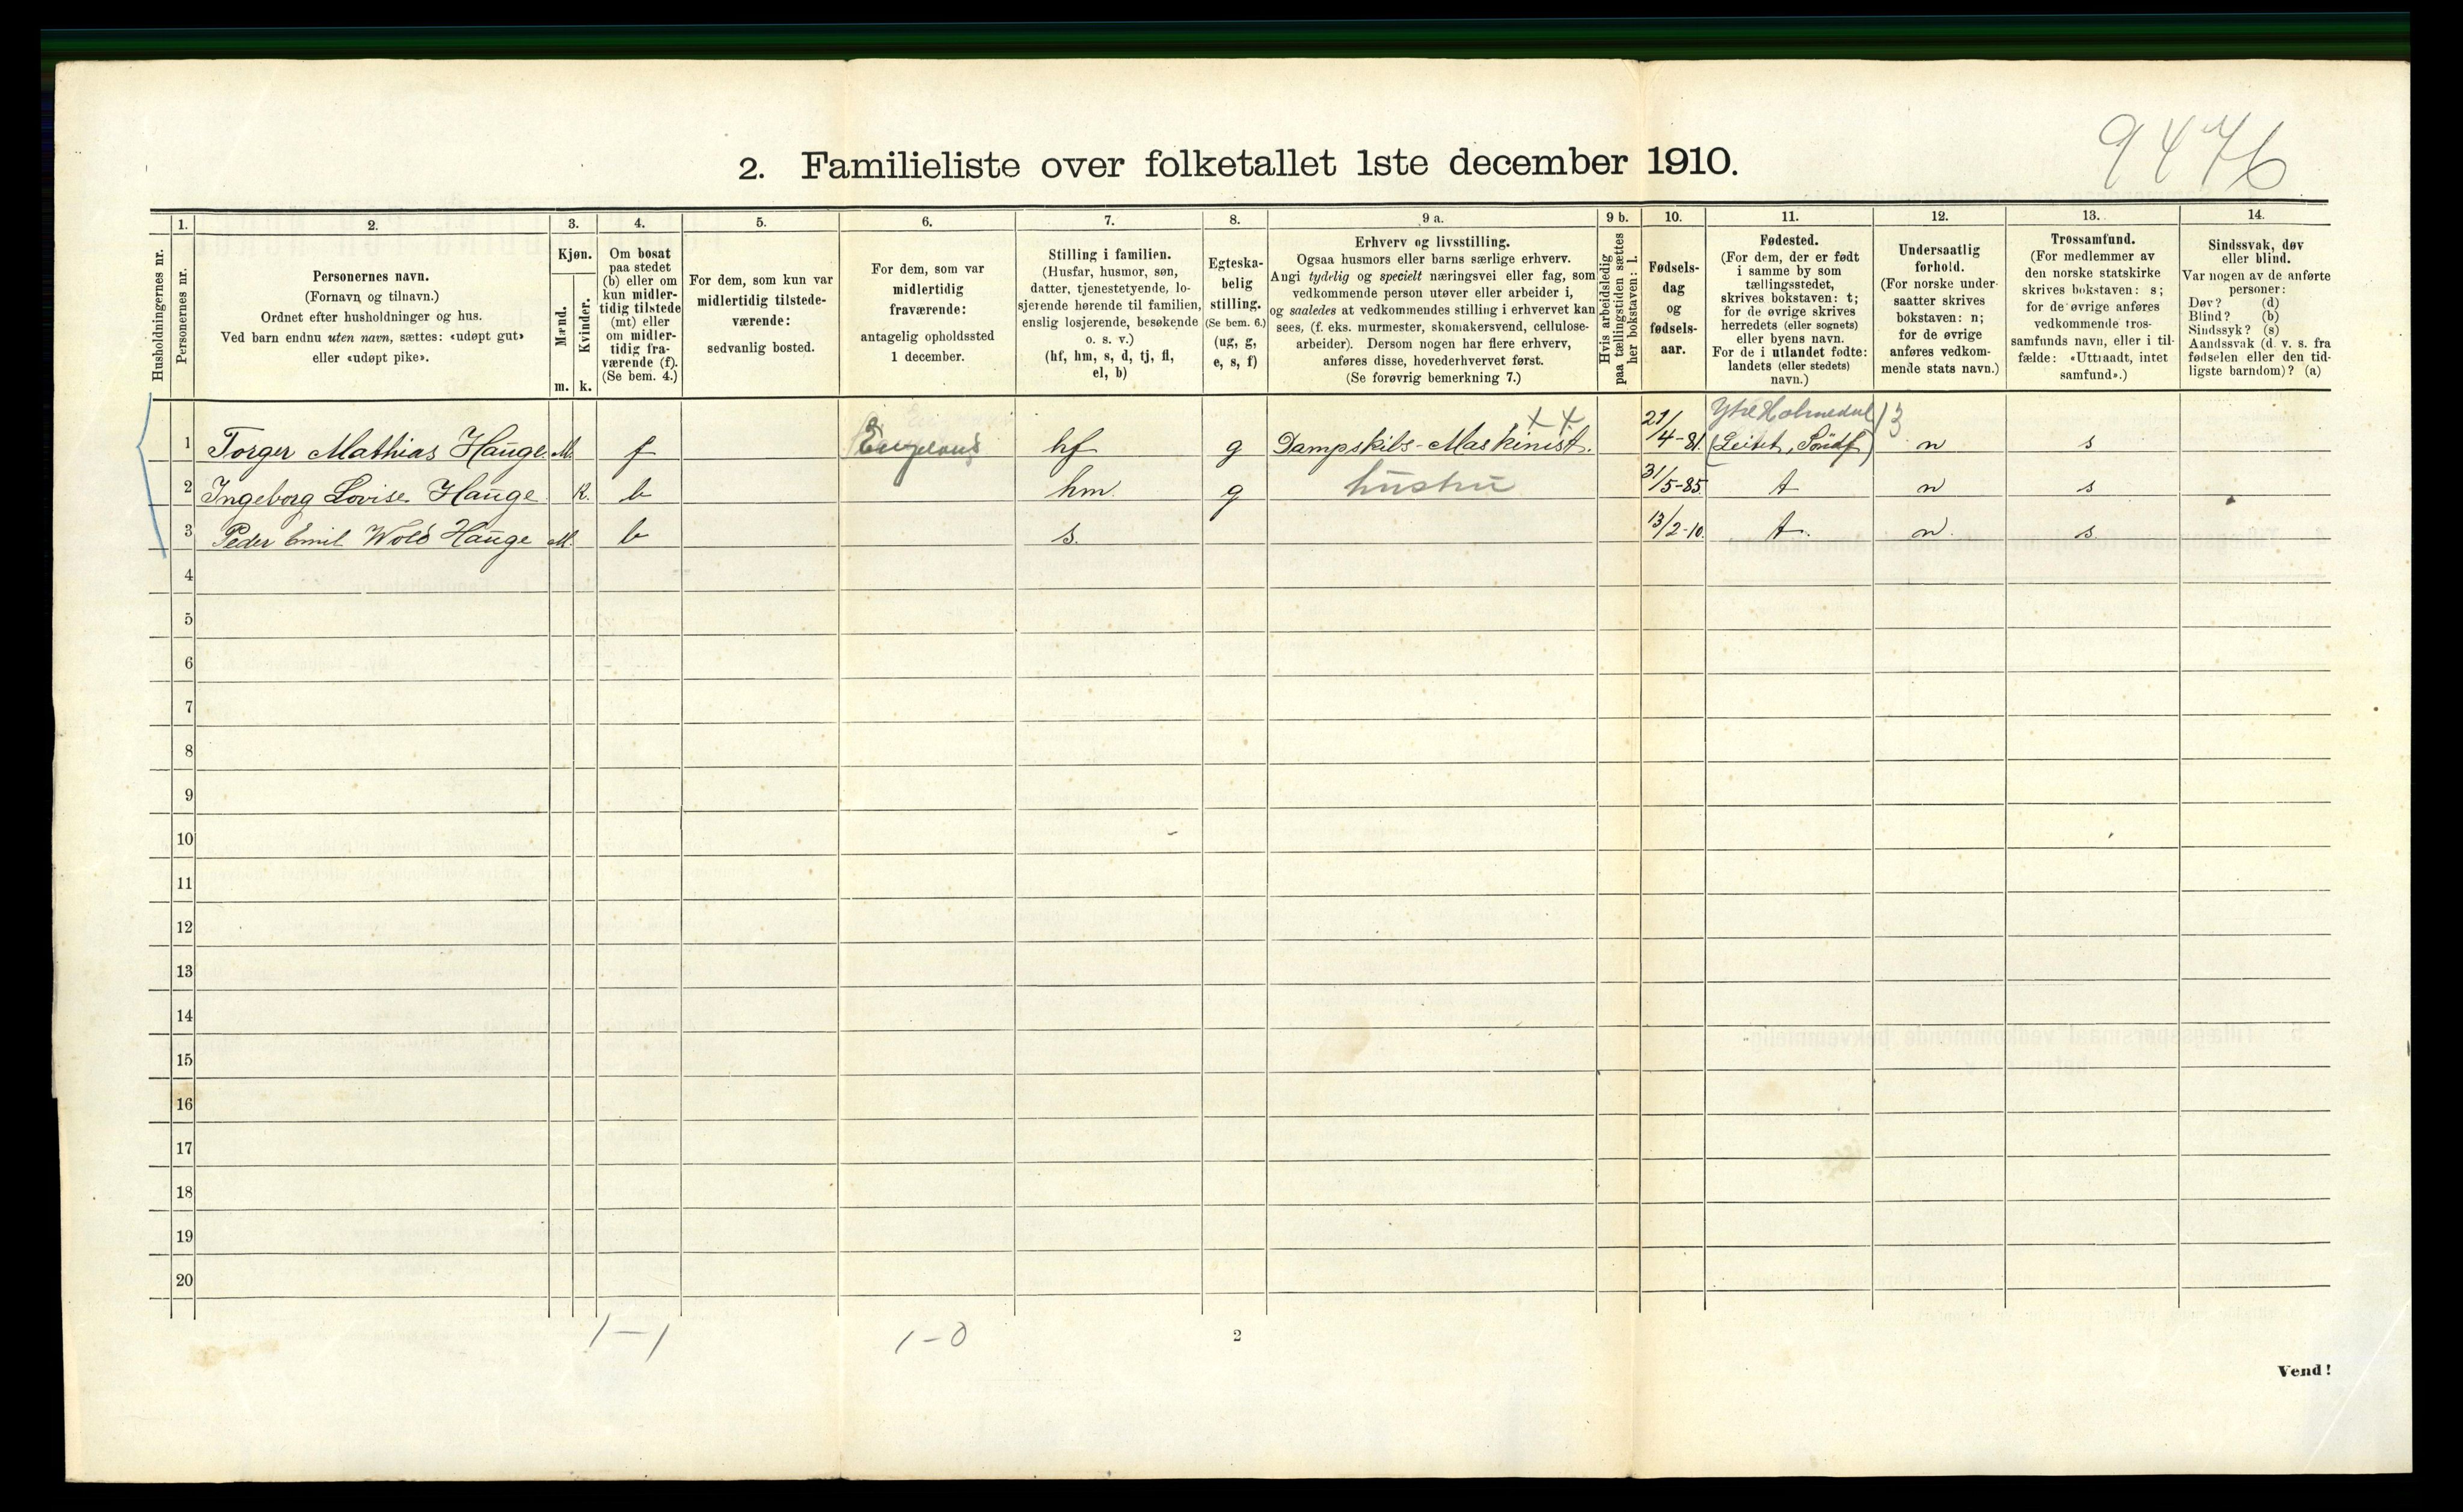 9476
2. Familieliste over folketallet 1ste december 1910.
Husholdningernes nr.
1. Personernes nr.
2.
Personernes navn.
(Fornavn og tilnavn.)
Ordnet efter husholdninger og hus.
Ved barn endnu uten navn, sættes: «udøpt gut»
eller «udøpt pike».
3.
Kjøn.
Mænd. Kvinder.
m. k.
4.
Om bosat
paa stedet
(b) eller om
kun midler-
tidig tilstede
(mt) eller
om midler-
tidig fra-
værende (f).
(Se bem. 4.)
5.
For dem, som kun var
midlertidig tilstede-
værende:
sedvanlig bosted.
6.
For dem, som var
midlertidig
fraværende:
antagelig opholdssted
1 december.
7.
Stilling i familien.
(Husfar, husmor, søn,
datter, tjenestetyende, lo-
sjerende hørende til familien,
enslig losjerende, besøkende
o. s. v.)
(hf, hm, s, d, tj, fl,
el, b)
8.
Egteska-
belig
stilling.
(Se bem. 6.)
(ug, g,
e, s, f)
9 a.
Erhverv og livsstilling.
Ogsaa husmors eller barns særlige erhverv.
Angi tydelig og specielt næringsvei eller fag, som
vedkommende person utøver eller arbeider i,
og saaledes at vedkommendes stilling i erhvervet kan
sees, (f. eks. murmester, skomakersvend, cellulose-
arbeider). Dersom nogen har flere erhverv,
anføres disse, hovederhvervet først.
(Se forøvrig bemerkning 7.)
9 b.
Hvis arbeidsledig
paa tællingstiden sættes
her bokstaven: l.
10.
Fødsels-
dag
og
fødsels-
aar.
11.
Fødested.
(For dem, der er født
i samme by som
tællingsstedet,
skrives bokstaven: t;
for de øvrige skrives
herredets (eller sognets)
eller byens navn.
For de i utlandet fødte:
landets (eller stedets)
navn.)
12.
Undersaatlig
forhold.
(For norske under-
saatter skrives
bokstaven: n;
for de øvrige
anføres vedkom-
mende stats navn.)
13.
Trossamfund.
(For medlemmer av
den norske statskirke
skrives bokstaven: s;
for de øvrige anføres
vedkommende tros-
samfunds navn, eller i til-
fælde: «Uttraadt, intet
samfund».)
14.
Sindssvak, døv
eller blind.
Var nogen av de anførte
personer:
Døv? (d)
Blind? (b)
Sindssyk? (s)
Aandssvak (d. v. s. fra
fødselen eller den tid-
ligste barndom)? (a)
Ytre Holmedal
1 Torger Mathias Hauge. M. f England hf g Dampskibs-Maskinist. 21/4-81. n s
2 Ingeborg Lovise Hauge K. b hm. g hustru 31/5-85 t n s
3 Peder Emil Wold Hauge M. b s. 13/2-10. t. n. s
4
5
6
7
8
9
10
11
12
13
14
15
16
17
18
19
20
1-1 1-0
2
Vend!